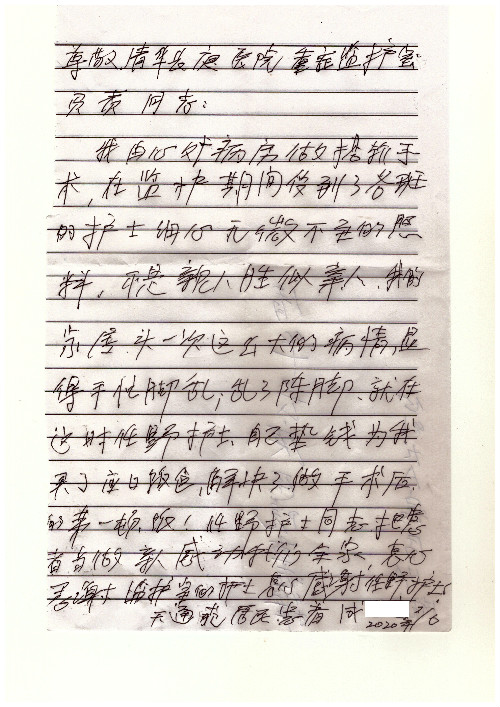 尊敬清华长庚医院重症监护室
负责同志：
我由心外病房做搭桥手
术，在监护期间受到了各班
的护士细心无微不至的照
料，不是亲人胜似亲人，我的
家属头一次这么大的病情，显
得手忙脚乱，乱了阵脚，就在
这时任野护士自己垫钱为我
买了蛋白饭包，解决了做手术后
的第一顿饭！任野护士同志把患
者当做亲人感动我们全家，衷心
感谢监护室的护士衷心感谢任野护士
天通苑居民患者 成
2020年 1/6